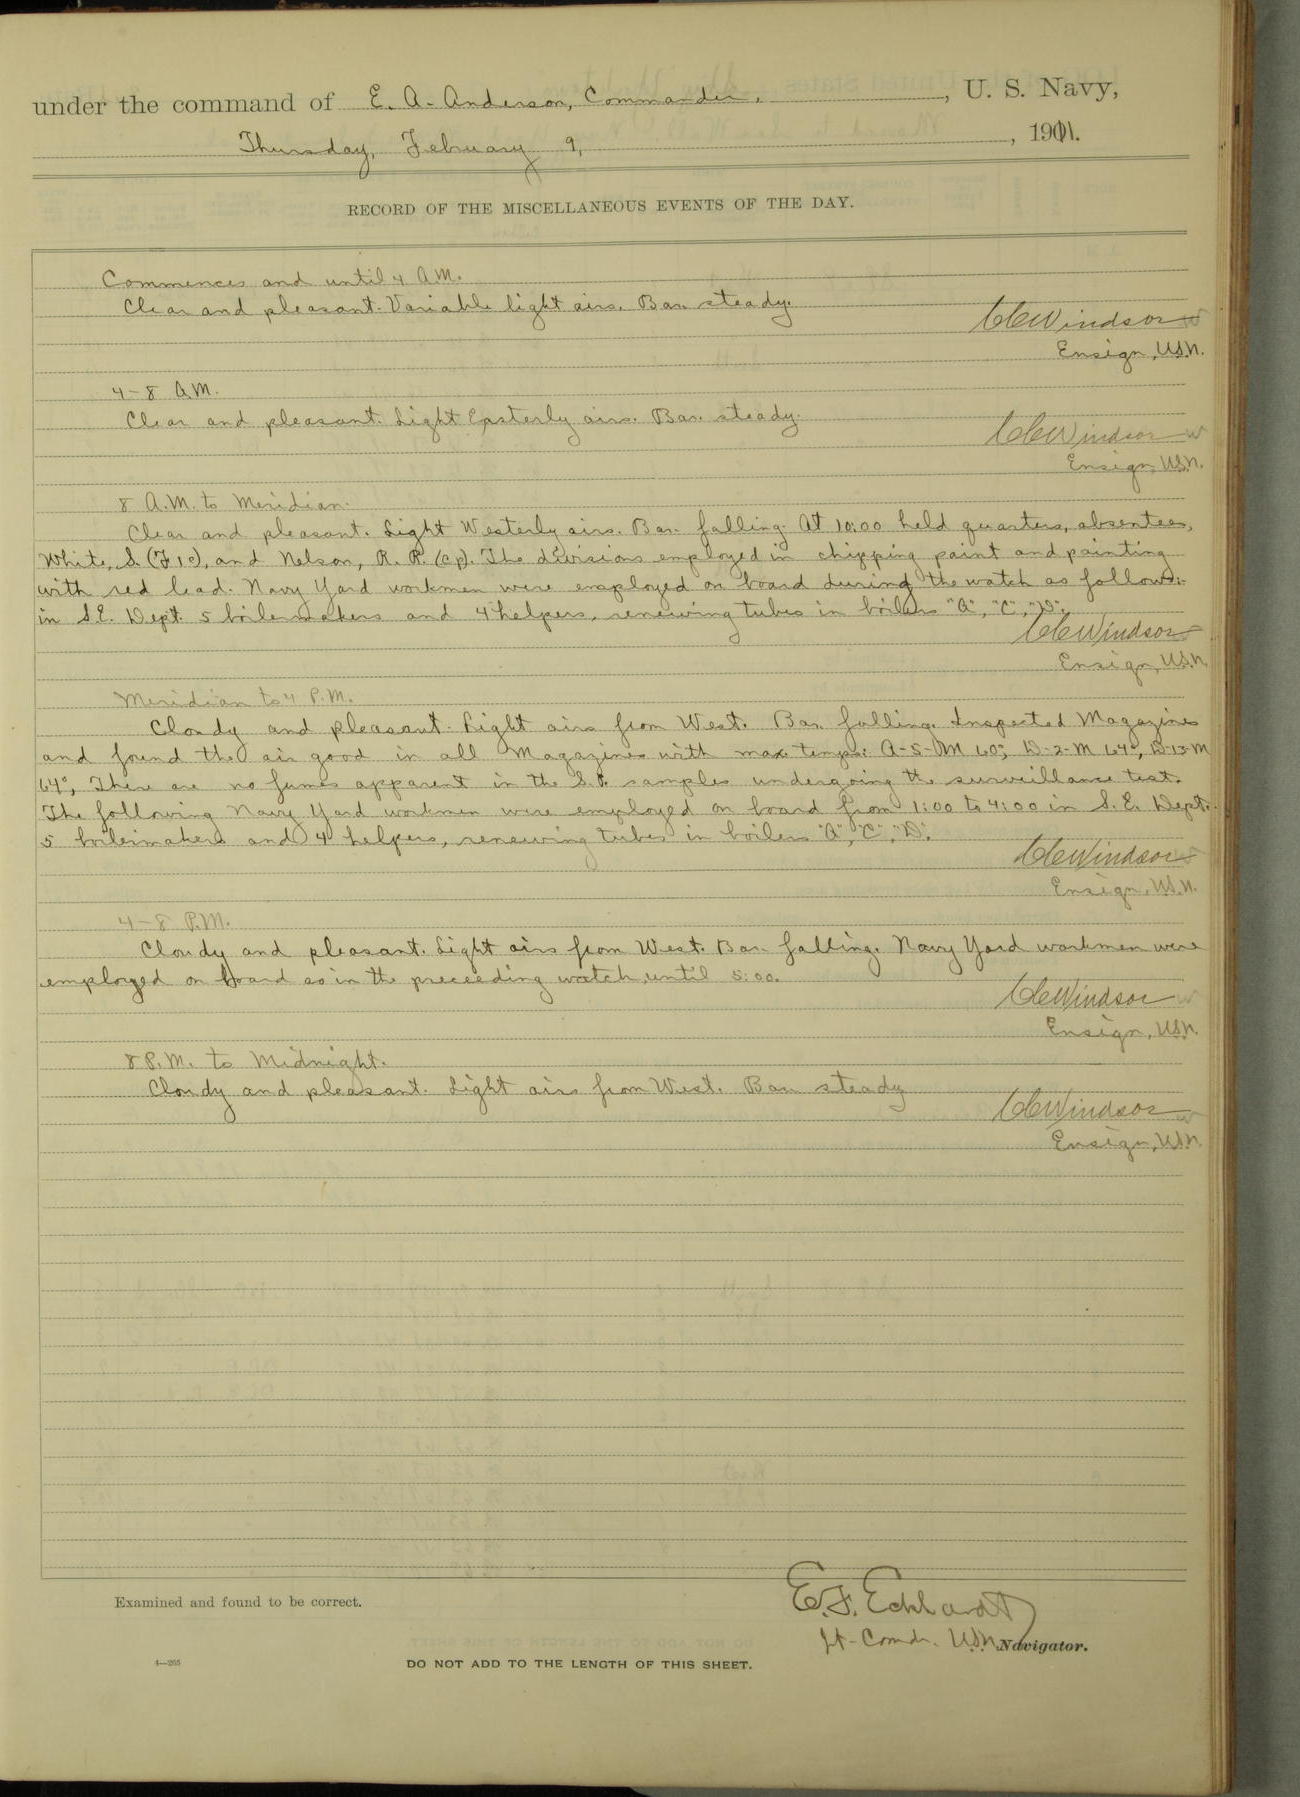 under the command of E. A. Anderson, Commander, , U. S. Navy,
Thursday, February 9, , 1911.
RECORD OF THE MISCELLANEOUS EVENTS OF THE DAY.
Commences and until 4 A.M.
Clear and pleasant. Variable light airs. Bar. steady.
Windsor
Ensign, U.S.N.
4-8 A.M.
Clear and pleasant. Light Easterly airs. Bar. steady.
Windsor
Ensign, U.S.N.
8 A.M. to Meridian.
Clear and pleasant. Light Westerly airs. Bar. falling. At 10:00 held quarters, absentees,
White, S. (F1c), and Nelson, R. R. (cp). The divisions employed in chipping paint and painting
with red lead. Navy Yard workmen were employed on board during the watch as follows:-
in S.E. Dept. 5 boilermakers and 4 helpers, renewing tubes in boilers "A", "C", "D".
Windsor
Ensign, U.S.N.
Meridian to 4 P.M.
Cloudy and pleasant. Light airs from West. Bar. falling. Inspected Magazines
and found the air good in all Magazines with max. temps: A-5-M 60°, D-2-M 64°, D-13-M
64°, There are no fumes apparent in the S.P. samples undergoing the surveillance test.
The following Navy Yard workmen were employed on board from 1:00 to 4:00 in S. E. Dept:
5 boilermakers and 4 helpers, renewing tubes in boilers "A", "C", "D".
Windsor
Ensign, U.S.N.
4-8 P.M.
Cloudy and pleasant. Light airs from West. Bar. falling. Navy Yard workmen were
employed on board as in the preceeding watch, until 5:00.
Windsor
Ensign, U.S.N.
8 P.M. to Midnight.
Cloudy and pleasant. Light airs from West. Bar. steady
Windsor
Ensign, U.S.N.
E.F. Eckhardt
Examined and found to be correct.
Lt-Comdr. U.S.N. Navigator.
4—265
DO NOT ADD TO THE LENGTH OF THIS SHEET.